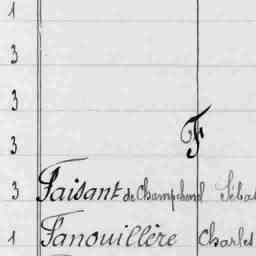 1
3
3
F
3
3 Faisant de Champchend Séba
1 Fanouillère Charles